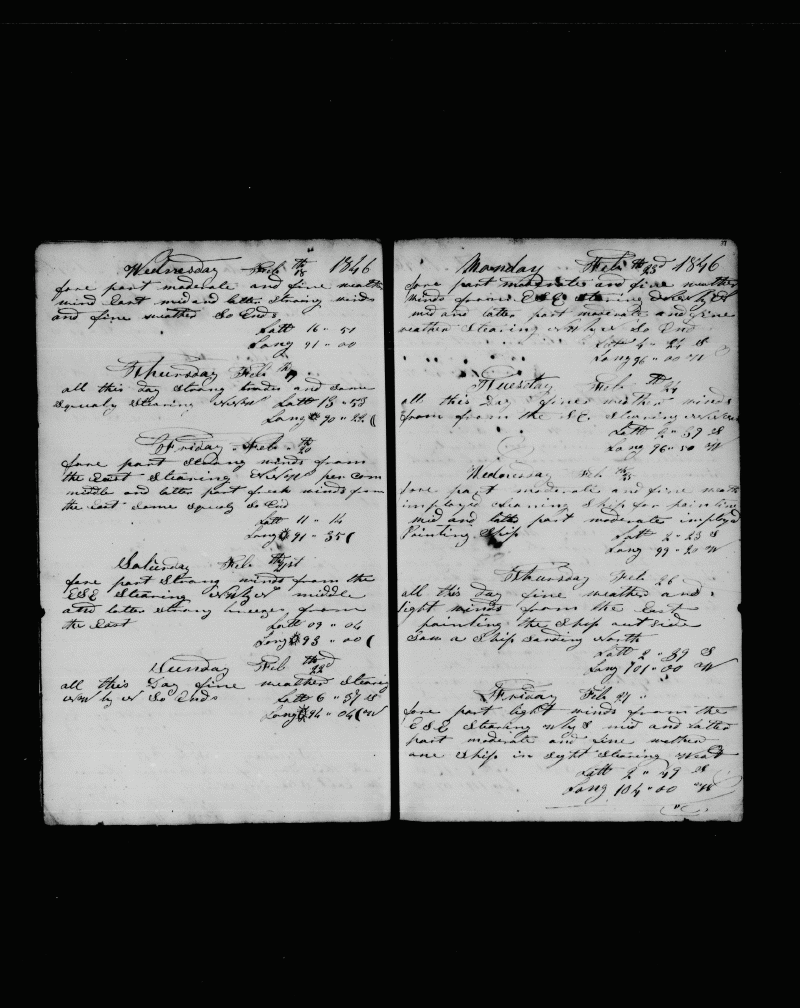 Wednesday Feb th 18 1846
fore part moderate and fine weather
wind East mid and latter Strong winds
and fine weather So Ends
Latt 16 " 51
Long 91 " 00
Thursday Feb th 19
all this day Strong trades and some
Squaly Stearing NWbW Latt 13 " 53
Long 90 " 22
Friday Feb th 20
fore part Strong winds from
the East Stearing per com
middle and latter part fresh winds from
the East some Squaly So End
Latt 11 " 14
Long 91 " 35
Saturday Feb 21st
fore part Strong winds from the
ESE Stearing NWbyW middle
and latter strong breezes from
the East
Latt 09 " 04
Long 93 " 00
Sunday Feb 22d
all this Day fine weather Stearing
NW by W So Ends Latt 6 " 37 S
Long 94 " 04 W
Monday Feb 23d 1846
fore part moderate and fine weather
winds from ESE Stearing
mid and latter part moderate and fine
weather Stearing NWbyW So End
Latt 4 " 24 S
Long 96 " 00 W
Tuesday Feb th 24
all this day fine weather winds
from from the S.E. Stearing
Latt 2 " 39 S
Long 96 " 50 W
Wednesday Feb th 25
fore part moderate and fine weath
imployd cleaning Ship for painting
mid and latter part moderate imployd
Painting Ship Latt 2 " 23 S
Long 99 " 20 W
Thursday Feb 26
all this day fine weather and
light winds from the East
painting the Ship out side
Saw a Ship Standing North
Latt 2 " 39 S
Long 101 " 00 W
Friday Feb 27
fore part light winds from the
ESE Stearing WbyS mid and latter
part moderate and fine wether
one Ship in Sight Stearing West
Latt 2 " 49 S
Long 104 " 00 W